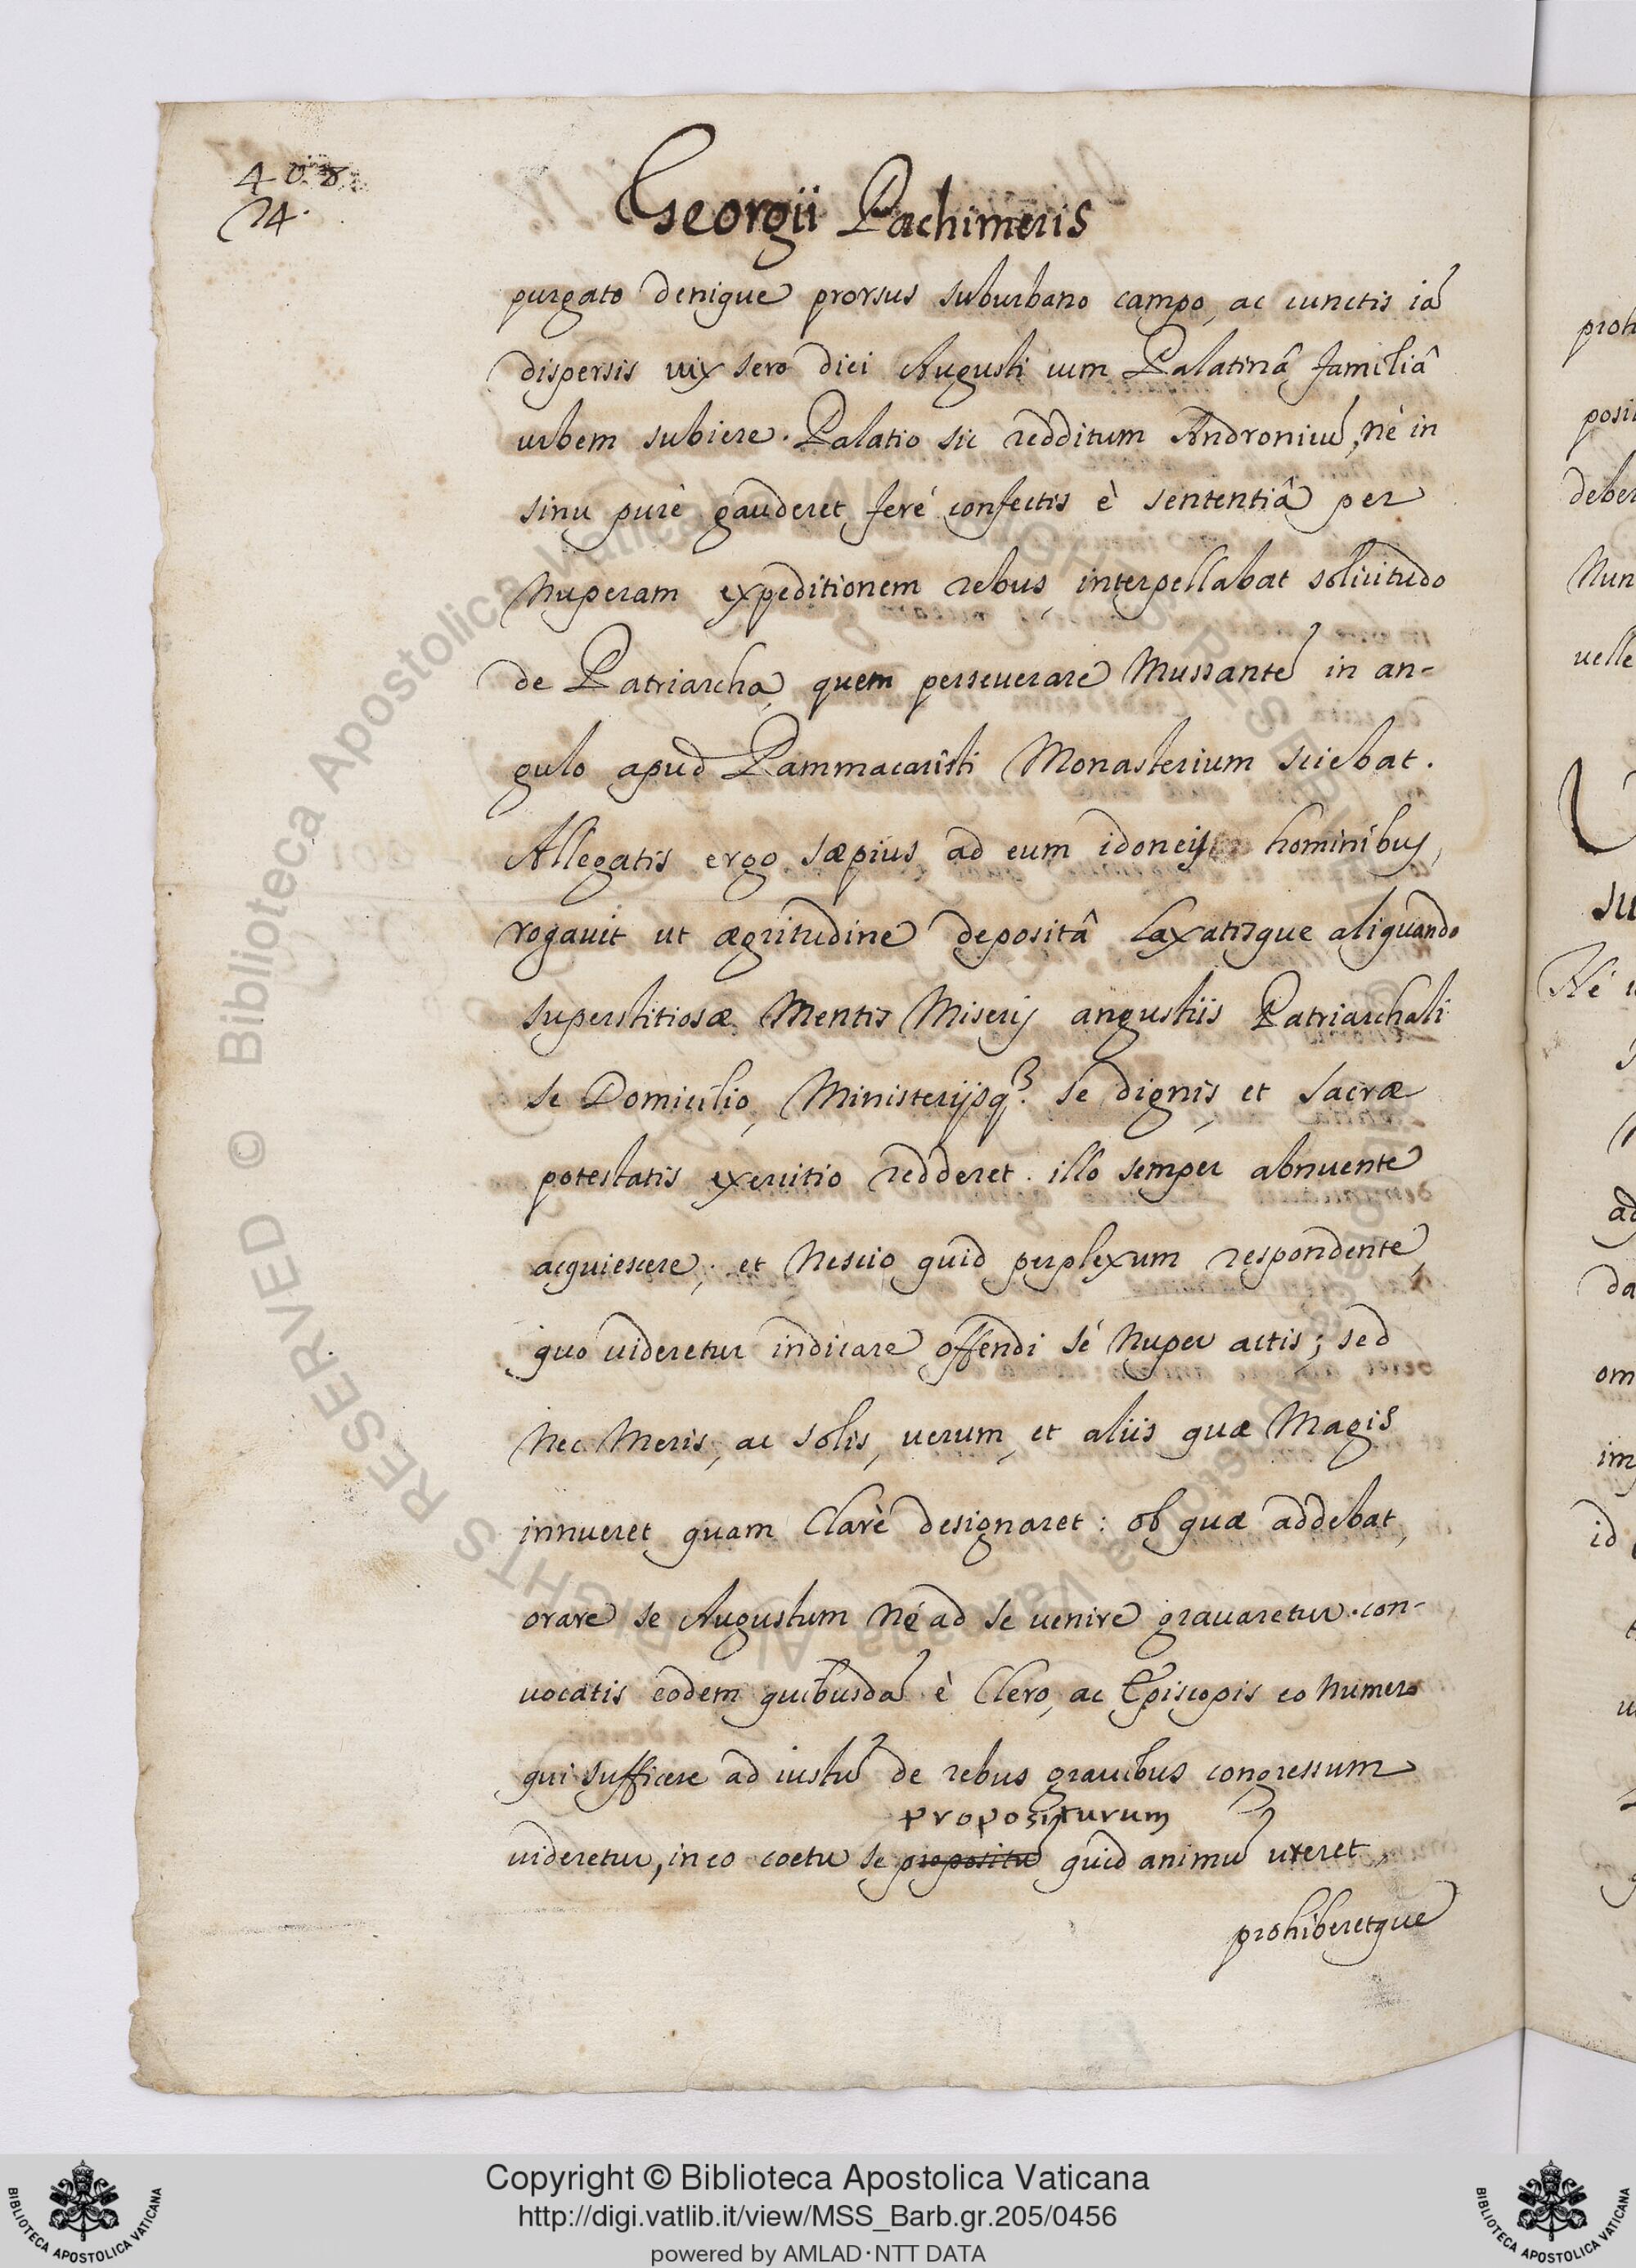 408
74.
Georgii Pachimeris
purgato denique prorsus suburbano campo, ac cunctis iã
dispersis uix sero diei Augusti cum Palatinâ familiâ
urbem subiere. Palatio sic redditum Andronicũ, nè in
sinu purè gauderet ferè confectis è sententiâ per
nuperam expeditionem rebus, interpellabat solicitudo
de Patriarcha, quem perseuerare Mussantẽ in an-
gulo apud Pammacaristi Monasterium sciebat.
Allegatis ergo sæpius ad eum idoneis hominibus,
rogauit ut ægritudine depositâ laxatisque aliquando
superstitiosæ Mentis Miserij angustiis Patriarchali
se Domicilio, Ministerijsq3. se dignis, et sacræ
potestatis exercitio redderet. illo semper abnuente
acquiescere, et Nescio quid perplexum respondente,
quo uideretur indicare offendi sé Nuper actis; sed
Nec Meris, ac solis, uerum, et aliis quæ Magis
innueret quam Clarè designaret: ob quæ addebat,
orare se Augustum Né ad se uenire grauaretur. con-
uocatis eodem quibusdã è Clero, ac Episcopis eo numero
qui sufficere ad iustũ de rebus grauibus congressum
propositurum
uideretur, in eo coetu se propositũ quid animũ ureret,
prohiberetque
proh
posi
deber
Nun
uelle
su
Né
ad
da
om
im
id
© Biblioteca Apostolica Vaticana ALL RIGHTS RESERVED
Copyright © Biblioteca Apostolica Vaticana
http://digi.vatlib.it/view/MSS_Barb.gr.205/0456
powered by AMLAD·NTT DATA
BIBLIOTECA APOSTOLICA VATICANA
BIBLIOTECA APOSTOLICA VATICANA